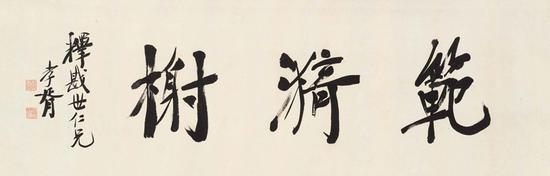 範漪榭
釋戡世仁兄
孝胥